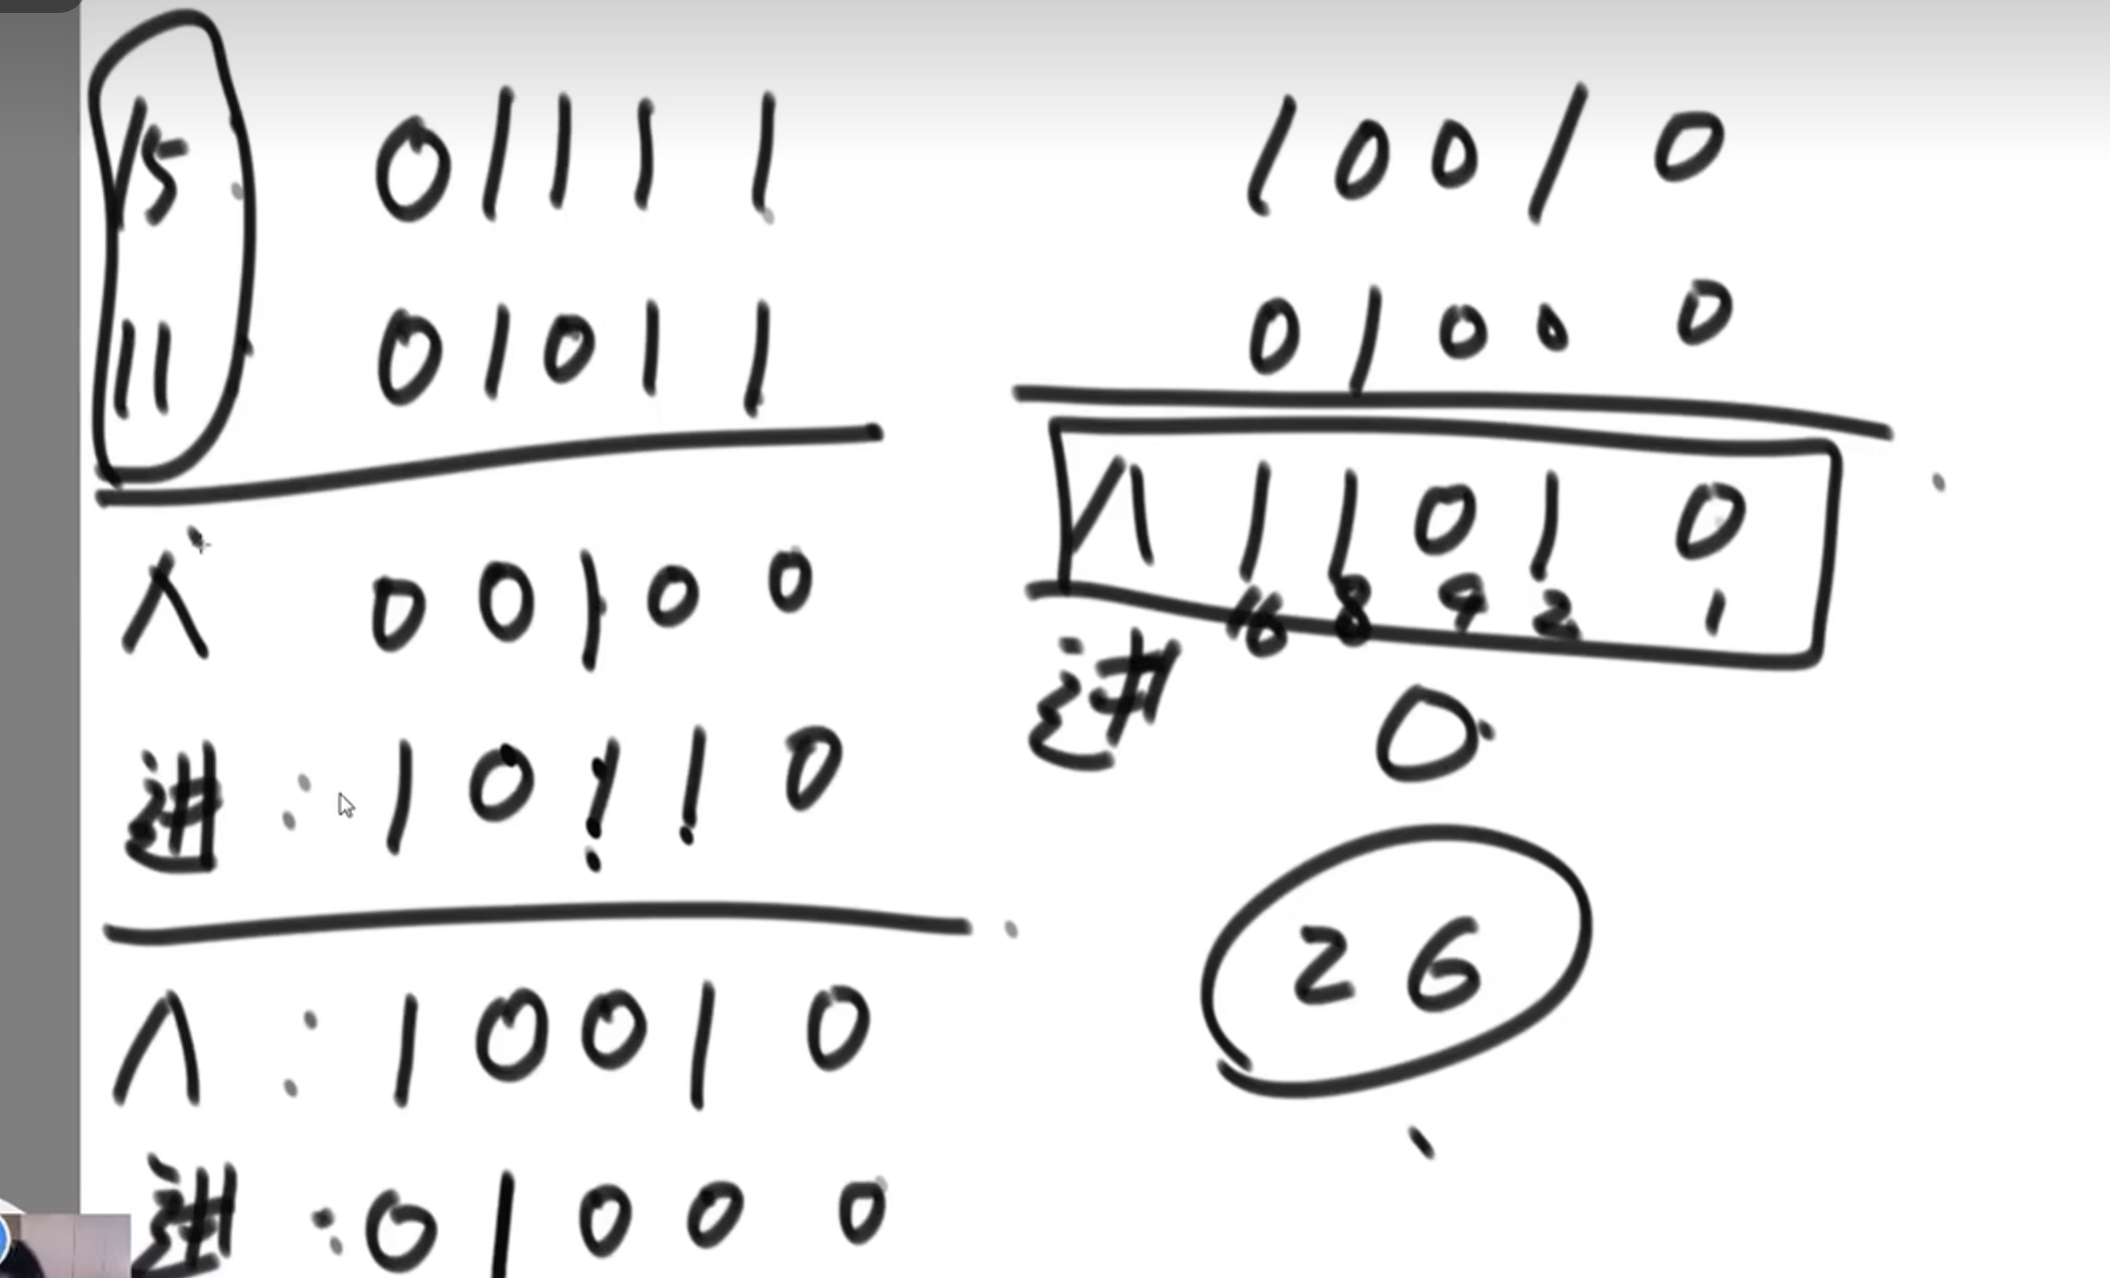 15 01111
11 01011
∧ 00100
进: 10110
∧: 10010
进: 01000
10010
01000
∧ 11010
16 8 4 2 1
进 0
26